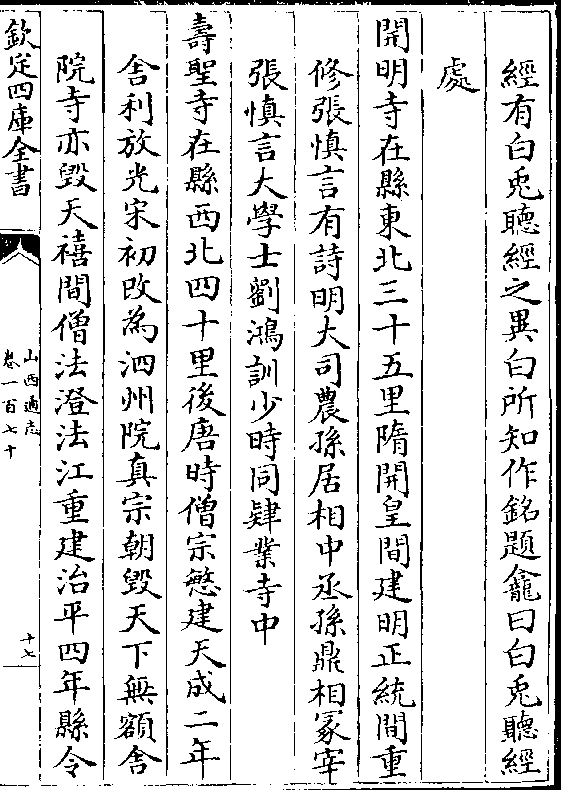 經有白兎聽經之異白所知作銘題龕曰白兎聽經
處
開明寺在縣東北三十五里隋開皇間建明正統間重
修張慎言有詩明大司農孫居相中丞孫鼎相冢宰
張慎言大學士劉鴻訓少時同肄業寺中
壽聖寺在縣西北四十里後唐時僧宗慜建天成二年
舍利放光宋初改為泗州院真宗朝毀天下無額舍
院寺亦毀天禧間僧法澄法江重建治平四年縣令
欽定四庫全書
山西通志
卷一百七十
十七